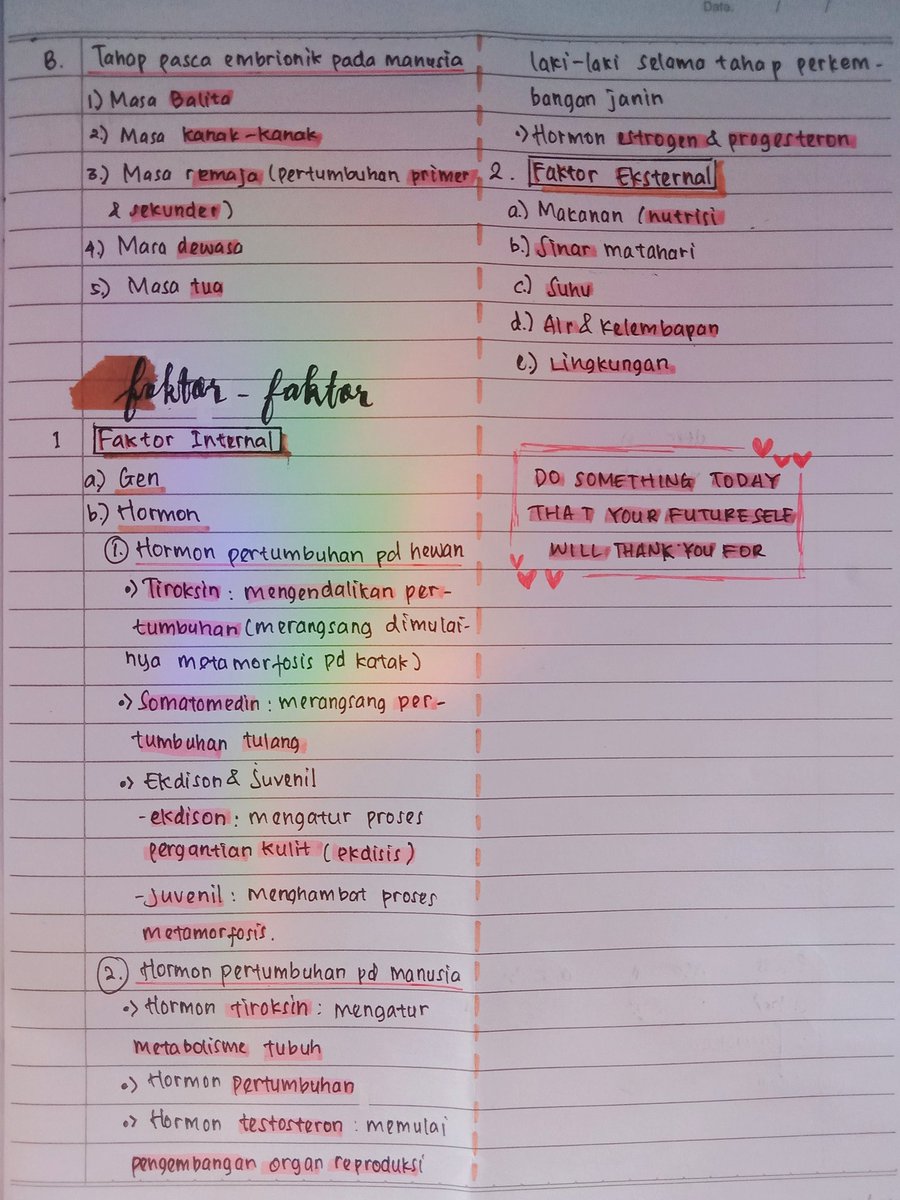 Date. / /
B. Tahap pasca embrionik pada manusia
1) Masa Balita
2.) Masa kanak-kanak
3.) Masa remaja (pertumbuhan primer
& sekunder)
4) Masa dewasa
5.) Masa tua
faktor - faktor
1 Faktor Internal
a) Gen
b.) Hormon
1. Hormon pertumbuhan pd hewan
•> Tiroksin : mengendalikan per-
tumbuhan (merangsang dimulai-
nya metamorfosis pd katak)
•> Somatomedin : merangsang per-
tumbuhan tulang
•> Ekdison & Juvenil
- ekdison : mengatur proses
pergantian kulit (ekdisis)
- juvenil : menghambat proses
metamorfosis.
2. Hormon pertumbuhan pd manusia
•> Hormon tiroksin : mengatur
metabolisme tubuh
•> Hormon pertumbuhan
•> Hormon testosteron : memulai
pengembangan organ reproduksi
laki-laki selama tahap perkem-
bangan janin
•> Hormon estrogen & progesteron
2. Faktor Eksternal
a.) Makanan / nutrisi
b.) Sinar matahari
c.) Suhu
d.) Air & Kelembapan
e.) Lingkungan
DO SOMETHING TODAY
THAT YOUR FUTURE SELF
WILL THANK YOU FOR